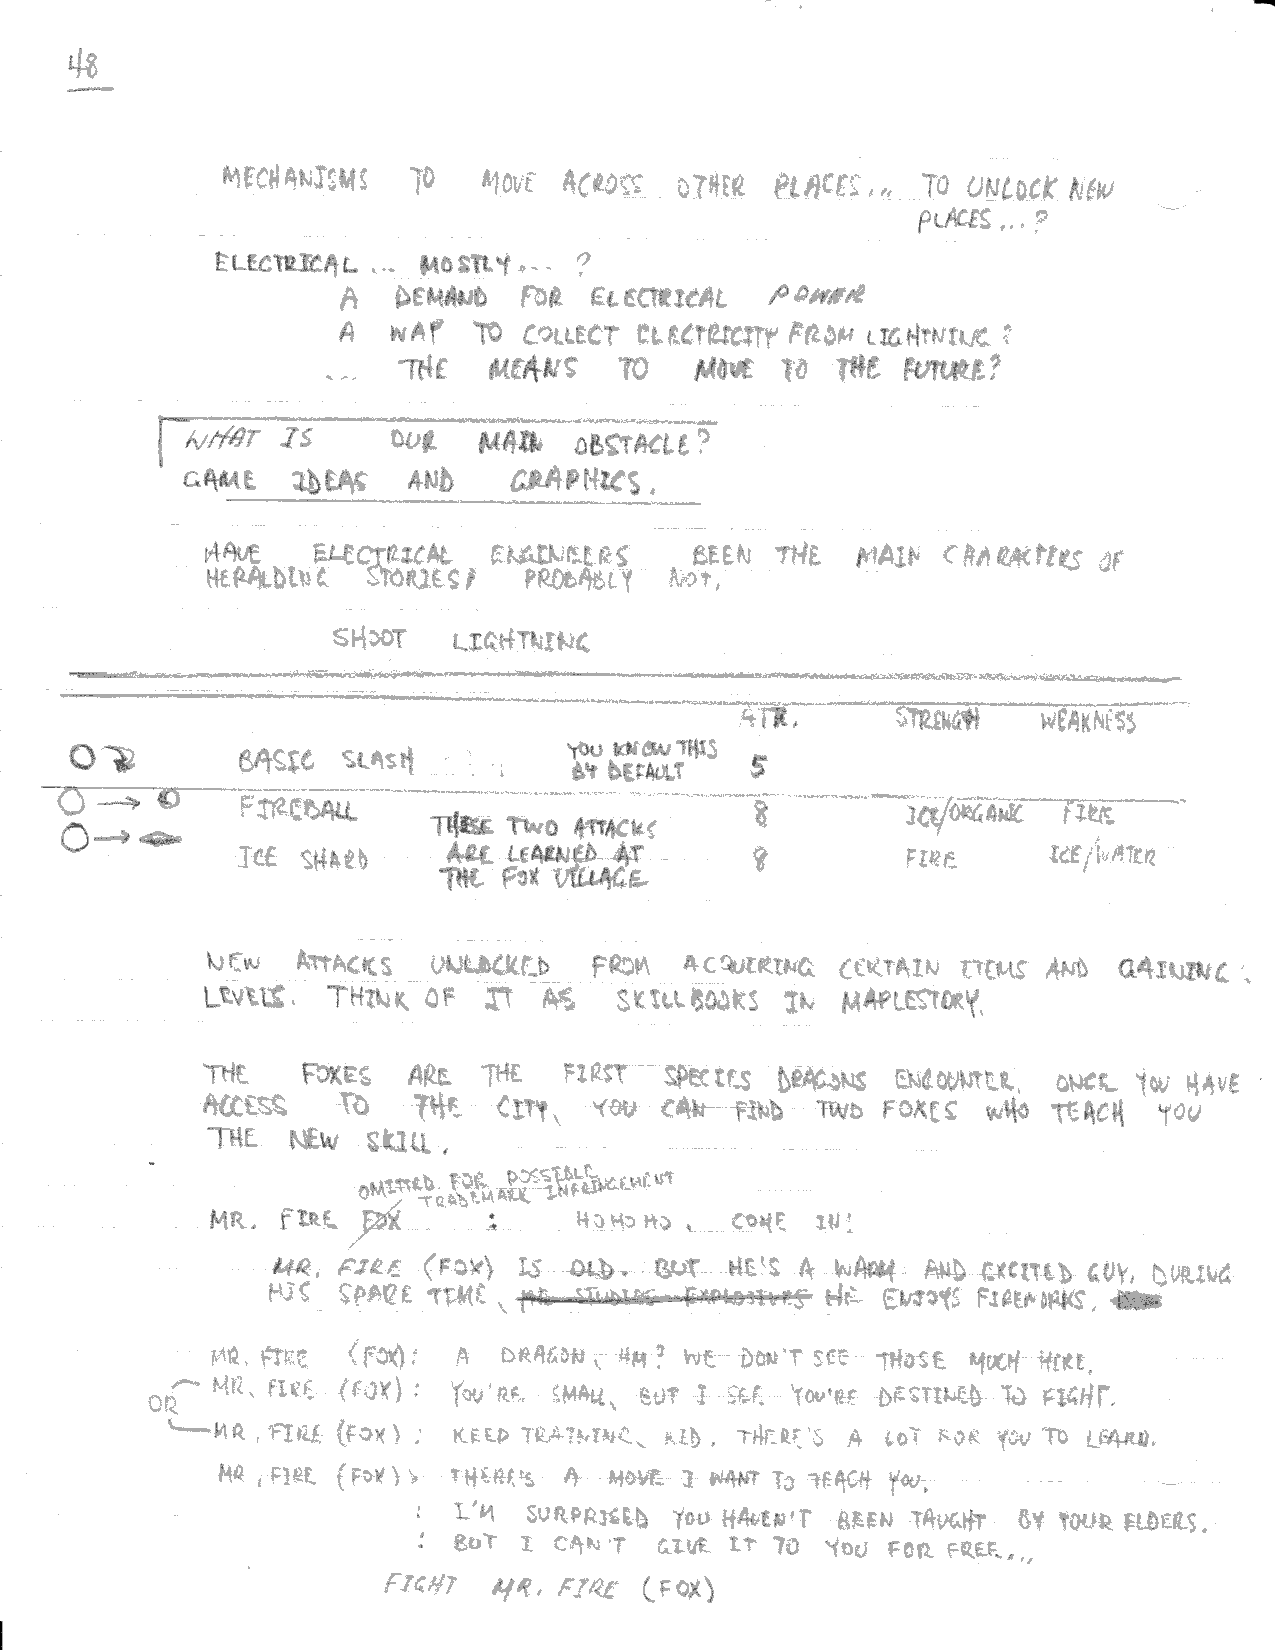 48
MECHANISMS TO MOVE ACROSS OTHER PLACES... TO UNLOCK NEW
PLACES...?
ELECTRICAL ... MOSTLY... ?
A DEMAND FOR ELECTRICAL POWER
A WAY TO COLLECT ELECTRICITY FROM LIGHTNING?
... THE MEANS TO MOVE TO THE FUTURE?
WHAT IS OUR MAIN OBSTACLE?
GAME IDEAS AND GRAPHICS.
HAVE ELECTRICAL ENGINEERS BEEN THE MAIN CHARACTERS OF
HERALDING STORIES? PROBABLY NOT.
SHOOT LIGHTNING
ATR. STRENGH WEAKNESS
BASIC SLASH YOU KNOW THIS BY DEFAULT 5
FIREBALL 8 ICE/ORGANIC FIRE
THESE TWO ATTACKS
ARE LEARNED AT
THE FOX VILLAGE
ICE SHARD 8 FIRE ICE/WATER
NEW ATTACKS UNLOCKED FROM ACQUIRING CERTAIN ITEMS AND GAINING
LEVELS. THINK OF IT AS SKILLBOOKS IN MAPLESTORY.
THE FOXES ARE THE FIRST SPECIES DRAGONS ENCOUNTER. ONCE YOU HAVE
ACCESS TO THE CITY, YOU CAN FIND TWO FOXES WHO TEACH YOU
THE NEW SKILL.
OMITTED FOR POSSIBLE
TRADEMARK INFRINGEMENT
MR. FIRE FOX : HOHOHO, COME IN!
MR. FIRE (FOX) IS OLD. BUT HE'S A WARM AND EXCITED GUY. DURING
HIS SPARE TIME, HE STUDIES EXPLOSIVES HE ENJOYS FIREWORKS.
MR. FIRE (FOX): A DRAGON, HM? WE DON'T SEE THOSE MUCH HERE.
MR. FIRE (FOX): YOU'RE SMALL, BUT I SEE YOU'RE DESTINED TO FIGHT.
OR
MR. FIRE (FOX): KEEP TRAINING, KID. THERE'S A LOT FOR YOU TO LEARN.
MR. FIRE (FOX): THERE'S A MOVE I WANT TO TEACH YOU.
: I'M SURPRISED YOU HAVEN'T BEEN TAUGHT BY YOUR ELDERS.
: BUT I CAN'T GIVE IT TO YOU FOR FREE...
FIGHT MR. FIRE (FOX)